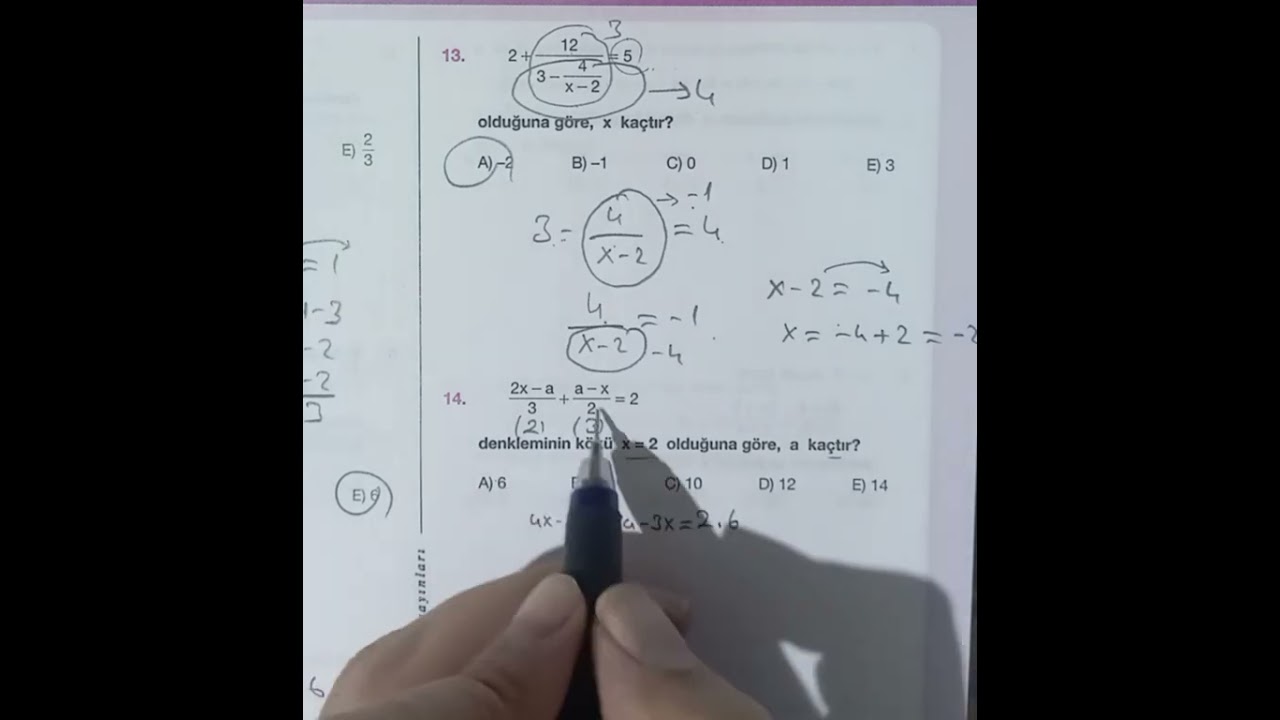 13. 2 + 12 / (3 − 4 / (x − 2)) = 5
3
→ 4
olduğuna göre, x kaçtır?
A) −2 B) −1 C) 0 D) 1 E) 3
3 − 4 / (x − 2) = 4
→ −1
4 / (x − 2) = −1
−4
x − 2 = −4
x = −4 + 2 = −2
14. (2x − a) / 3 + (a − x) / 2 = 2
(2) (3)
denkleminin kökü x = 2 olduğuna göre, a kaçtır?
A) 6 C) 10 D) 12 E) 14
4x − a − 3x = 2.6
E) 2/3
= 1
− 3
−2
−2
3
E) 6
ayınları
6